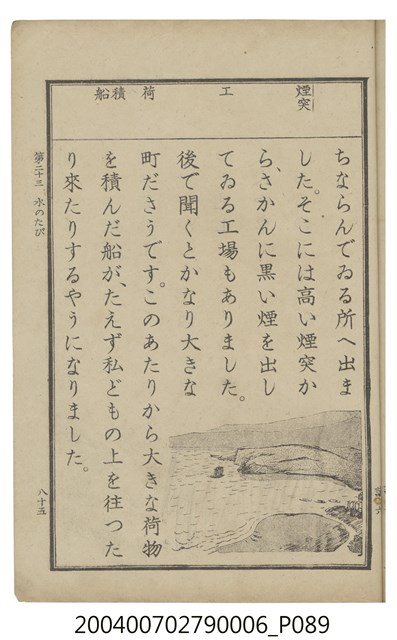 煙突
工
荷
積
船
ちならんでゐる所へ出ま
した。そこには高い煙突か
ら、さかんに黒い煙を出し
てゐる工場もありました。
後で聞くとかなり大きな
町ださうです。このあたりから大きな荷物
を積んだ船が、たえず私どもの上を往つた
り來たりするやうになりました。
第二十三 水のたび
八十五
200400702790006_P089